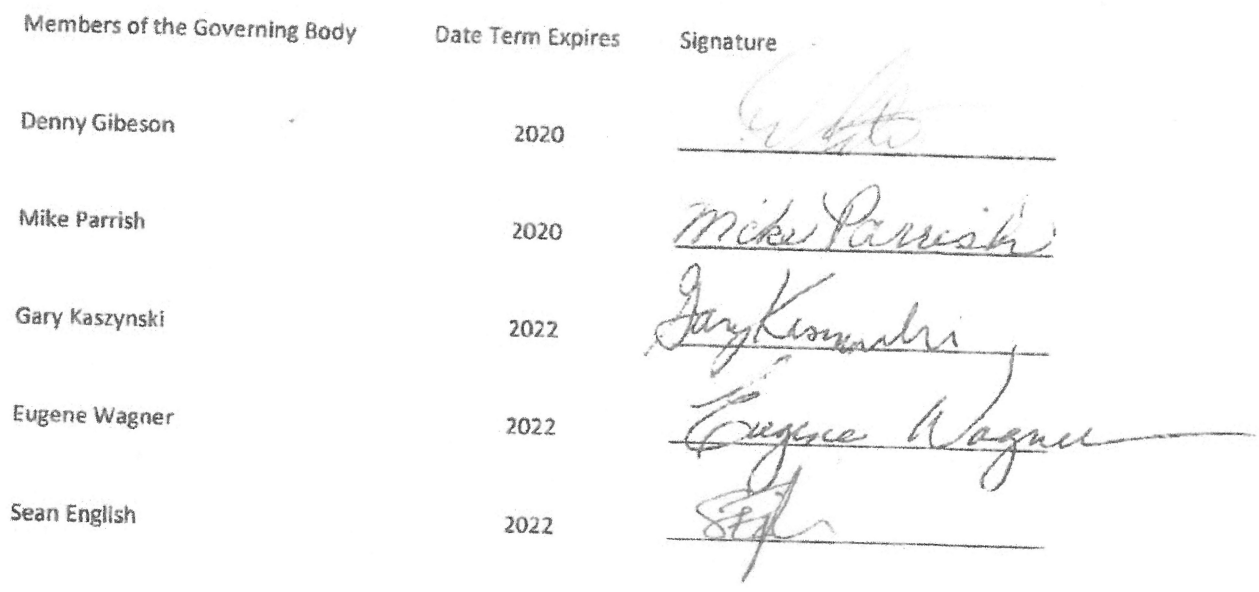 Members of the Governing Body Date Term Expires Signature
Denny Gibeson 2020
Mike Parrish 2020 Mike Parrish
Gary Kaszynski 2022 Gary
Eugene Wagner 2022 Eugene Wagner
Sean English 2022